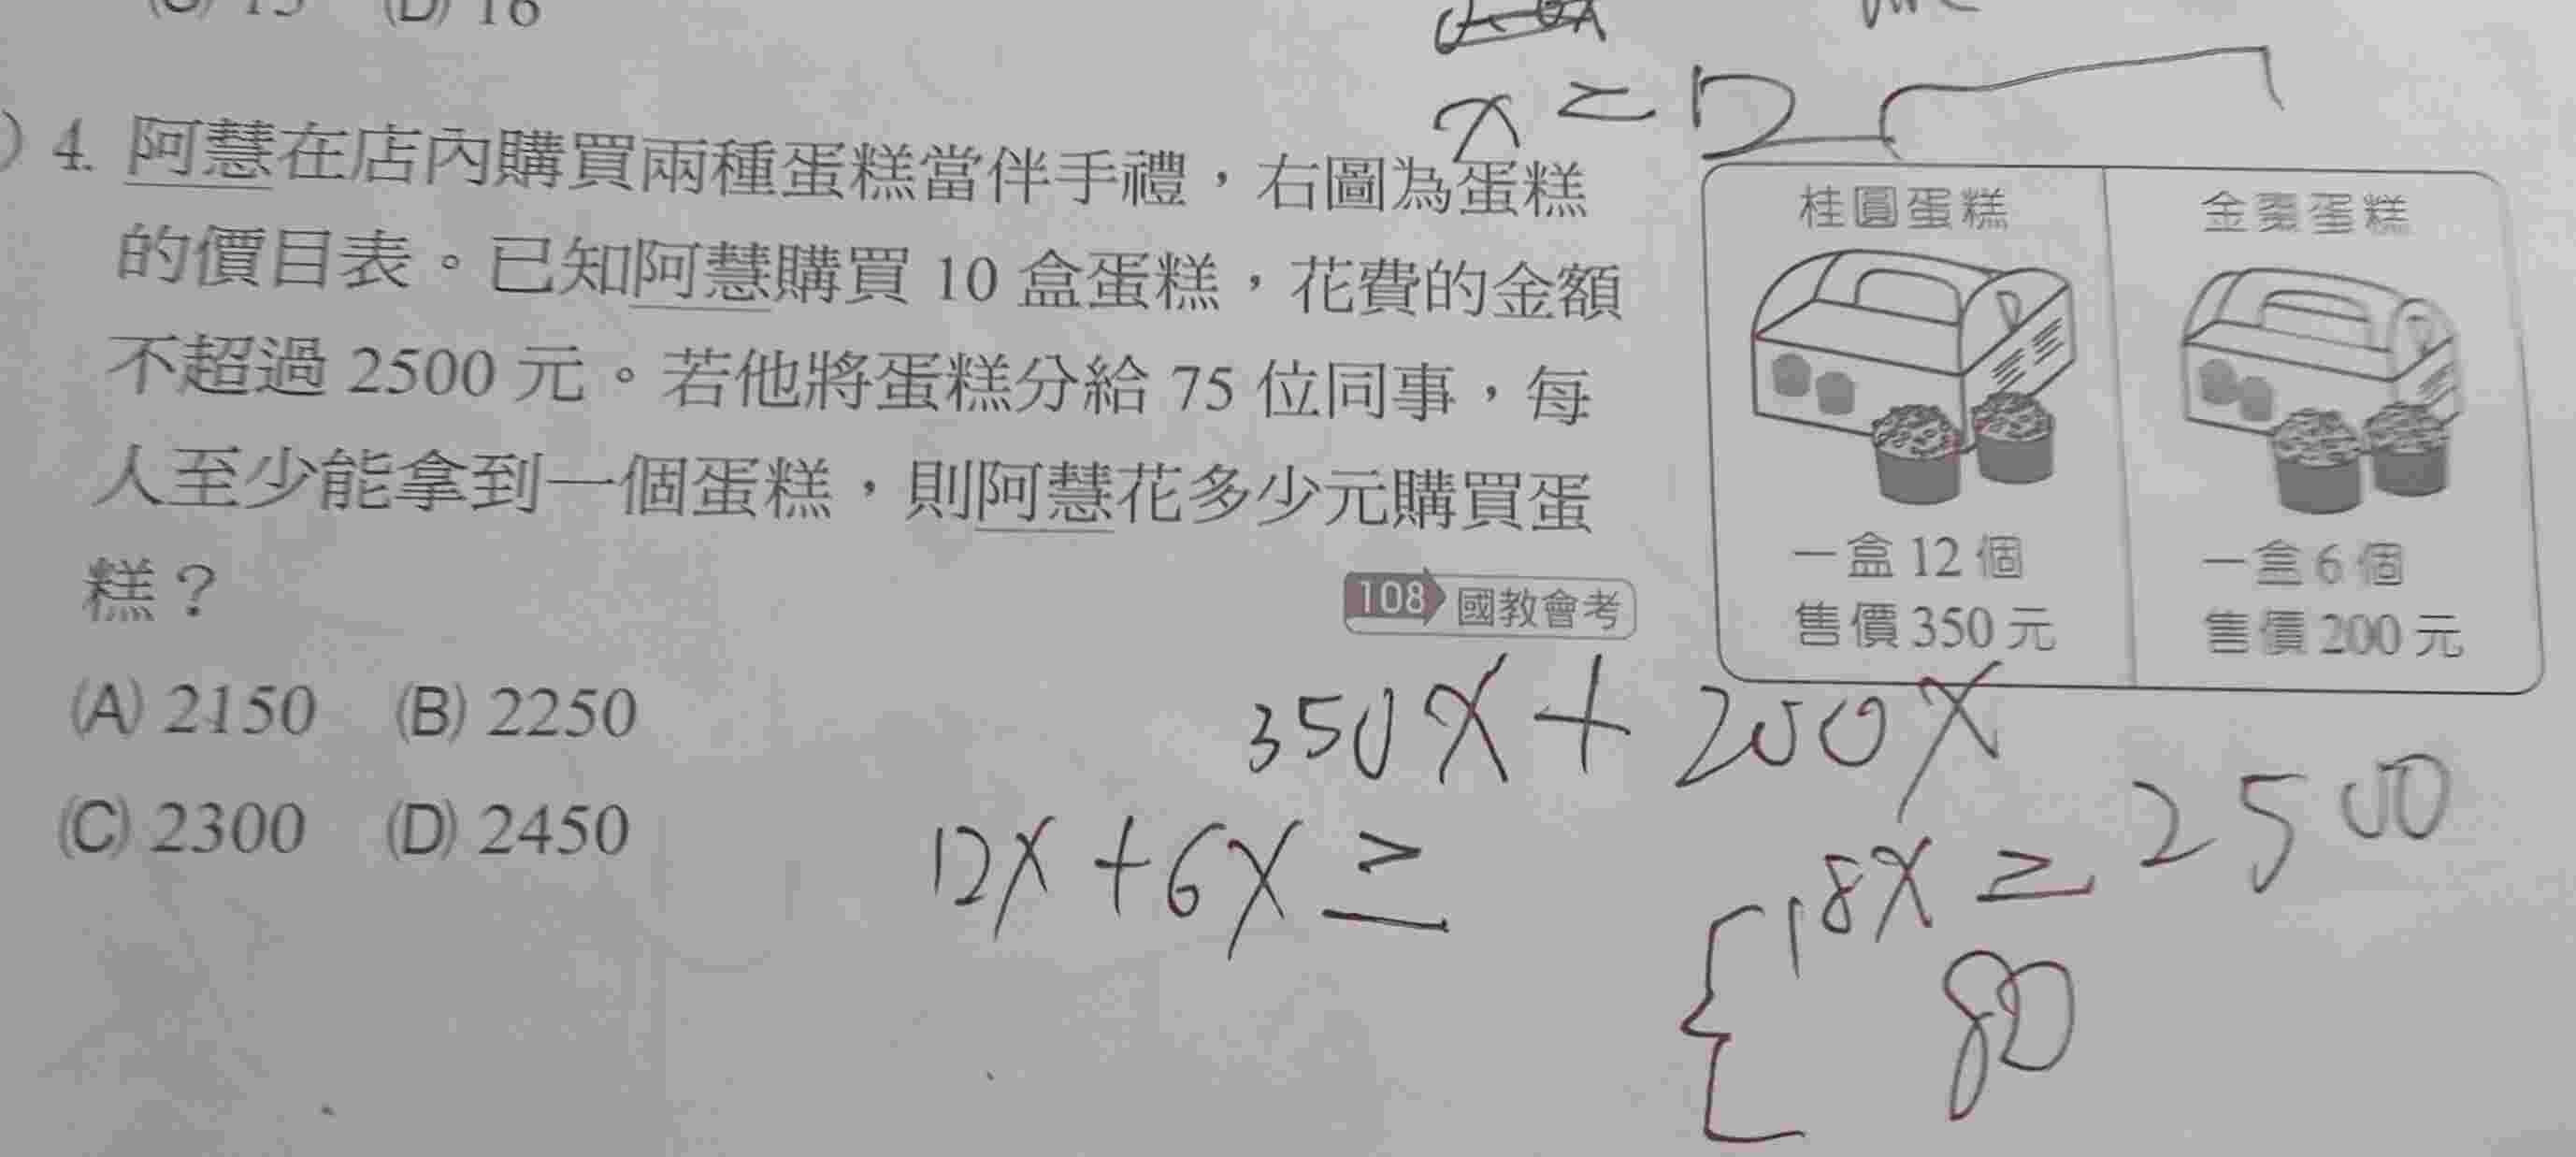 (C) 15 (D) 16
x = 12
) 4. 阿慧在店內購買兩種蛋糕當伴手禮,右圖為蛋糕
的價目表。已知阿慧購買 10 盒蛋糕,花費的金額
不超過 2500 元。若他將蛋糕分給 75 位同事,每
人至少能拿到一個蛋糕,則阿慧花多少元購買蛋
糕?
108 國教會考
(A) 2150 (B) 2250
(C) 2300 (D) 2450
桂圓蛋糕
一盒 12 個
售價 350 元
金棗蛋糕
一盒 6 個
售價 200 元
350x + 200x
2500
12x + 6x ≥
18x ≥
80